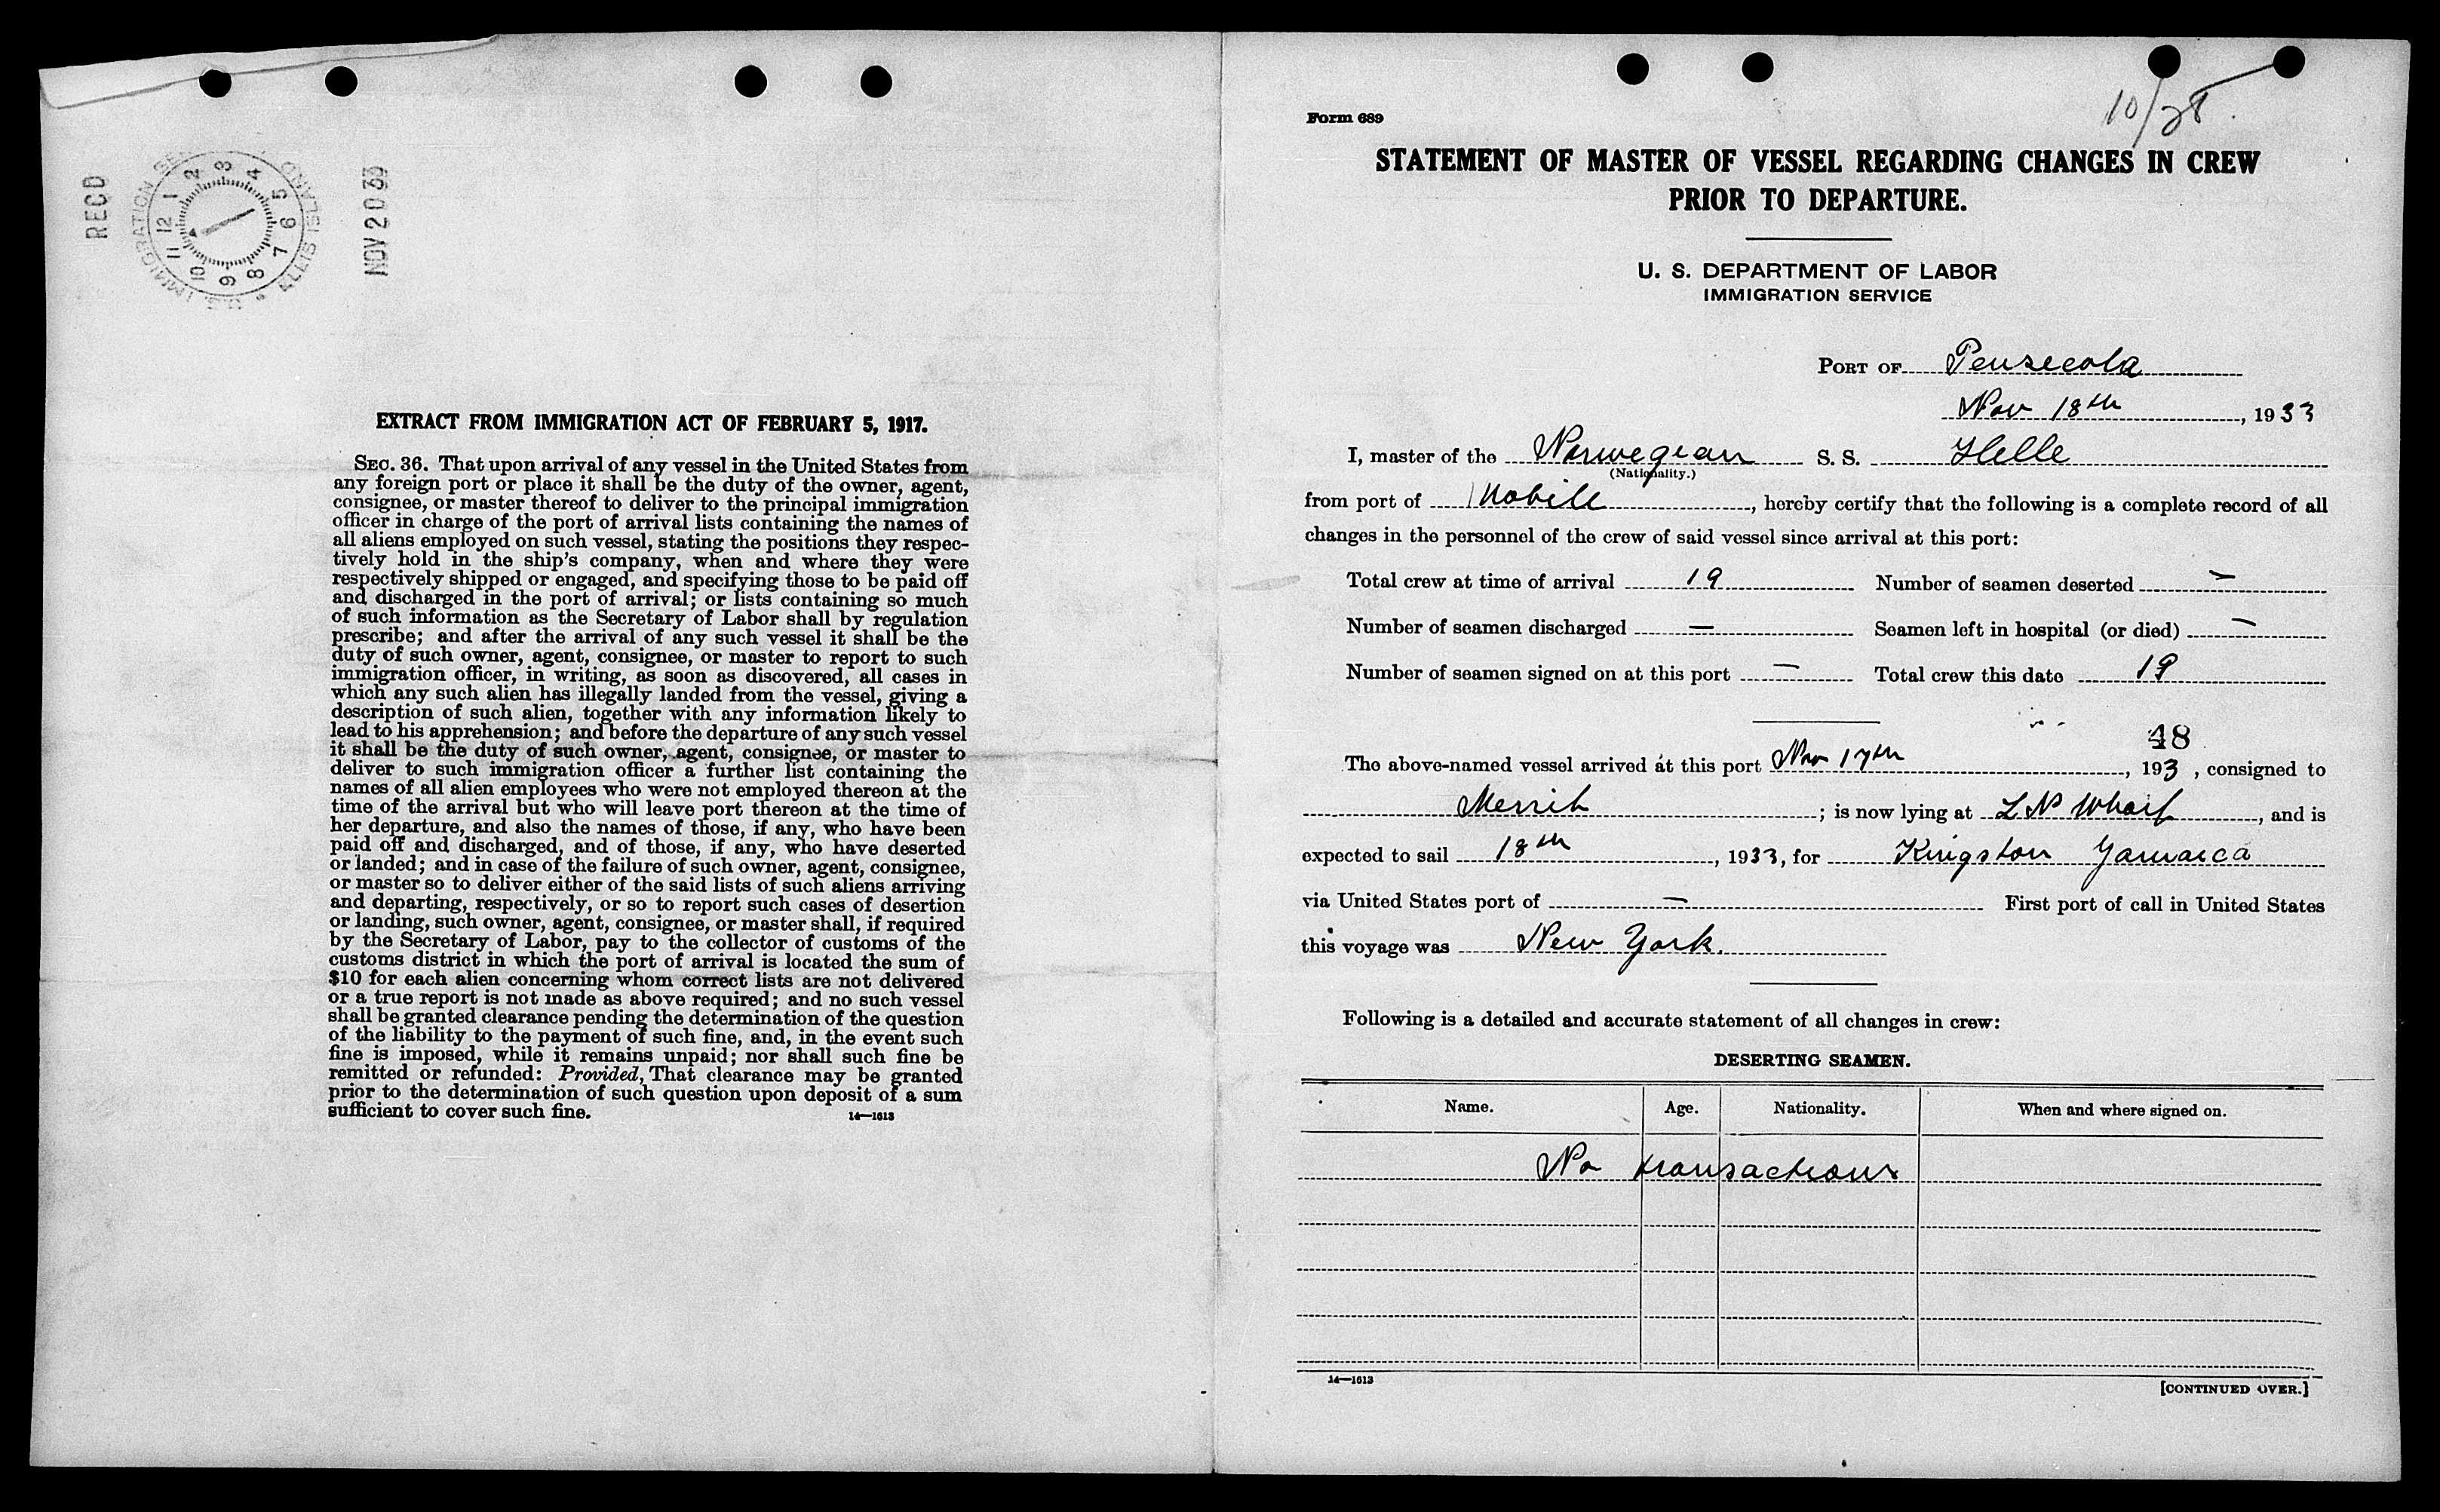 RECD
U.S. IMMIGRATION SER
ELLIS ISLAND
12 1 2 3 4 5 6 7 8 9 10 11
NOV 20 33
EXTRACT FROM IMMIGRATION ACT OF FEBRUARY 5, 1917.
SEC. 36. That upon arrival of any vessel in the United States from
any foreign port or place it shall be the duty of the owner, agent,
consignee, or master thereof to deliver to the principal immigration
officer in charge of the port of arrival lists containing the names of
all aliens employed on such vessel, stating the positions they respec-
tively hold in the ship's company, when and where they were
respectively shipped or engaged, and specifying those to be paid off
and discharged in the port of arrival; or lists containing so much
of such information as the Secretary of Labor shall by regulation
prescribe; and after the arrival of any such vessel it shall be the
duty of such owner, agent, consignee, or master to report to such
immigration officer, in writing, as soon as discovered, all cases in
which any such alien has illegally landed from the vessel, giving a
description of such alien, together with any information likely to
lead to his apprehension; and before the departure of any such vessel
it shall be the duty of such owner, agent, consignee, or master to
deliver to such immigration officer a further list containing the
names of all alien employees who were not employed thereon at the
time of the arrival but who will leave port thereon at the time of
her departure, and also the names of those, if any, who have been
paid off and discharged, and of those, if any, who have deserted
or landed; and in case of the failure of such owner, agent, consignee,
or master so to deliver either of the said lists of such aliens arriving
and departing, respectively, or so to report such cases of desertion
or landing, such owner, agent, consignee, or master shall, if required
by the Secretary of Labor, pay to the collector of customs of the
customs district in which the port of arrival is located the sum of
$10 for each alien concerning whom correct lists are not delivered
or a true report is not made as above required; and no such vessel
shall be granted clearance pending the determination of the question
of the liability to the payment of such fine, and, in the event such
fine is imposed, while it remains unpaid; nor shall such fine be
remitted or refunded: Provided, That clearance may be granted
prior to the determination of such question upon deposit of a sum
sufficient to cover such fine.
14—1613
10/28
Form 689
STATEMENT OF MASTER OF VESSEL REGARDING CHANGES IN CREW
PRIOR TO DEPARTURE.
U. S. DEPARTMENT OF LABOR
IMMIGRATION SERVICE
PORT OF Pensecola
Nov 18th, 1933
I, master of the Norwegian S. S. Helle
(Nationality.)
from port of Mobile, hereby certify that the following is a complete record of all
changes in the personnel of the crew of said vessel since arrival at this port:
Total crew at time of arrival 19 Number of seamen deserted —
Number of seamen discharged — Seamen left in hospital (or died) —
Number of seamen signed on at this port — Total crew this date 19
48
The above-named vessel arrived at this port Nov 17th, 1933, consigned to
Merrit; is now lying at L N Wharf, and is
expected to sail 18th, 1933, for Kingston Yamaica
via United States port of — First port of call in United States
this voyage was New York.
Following is a detailed and accurate statement of all changes in crew:
DESERTING SEAMEN.
Name. Age. Nationality. When and where signed on.
No transactions
14—1613
[CONTINUED OVER.]